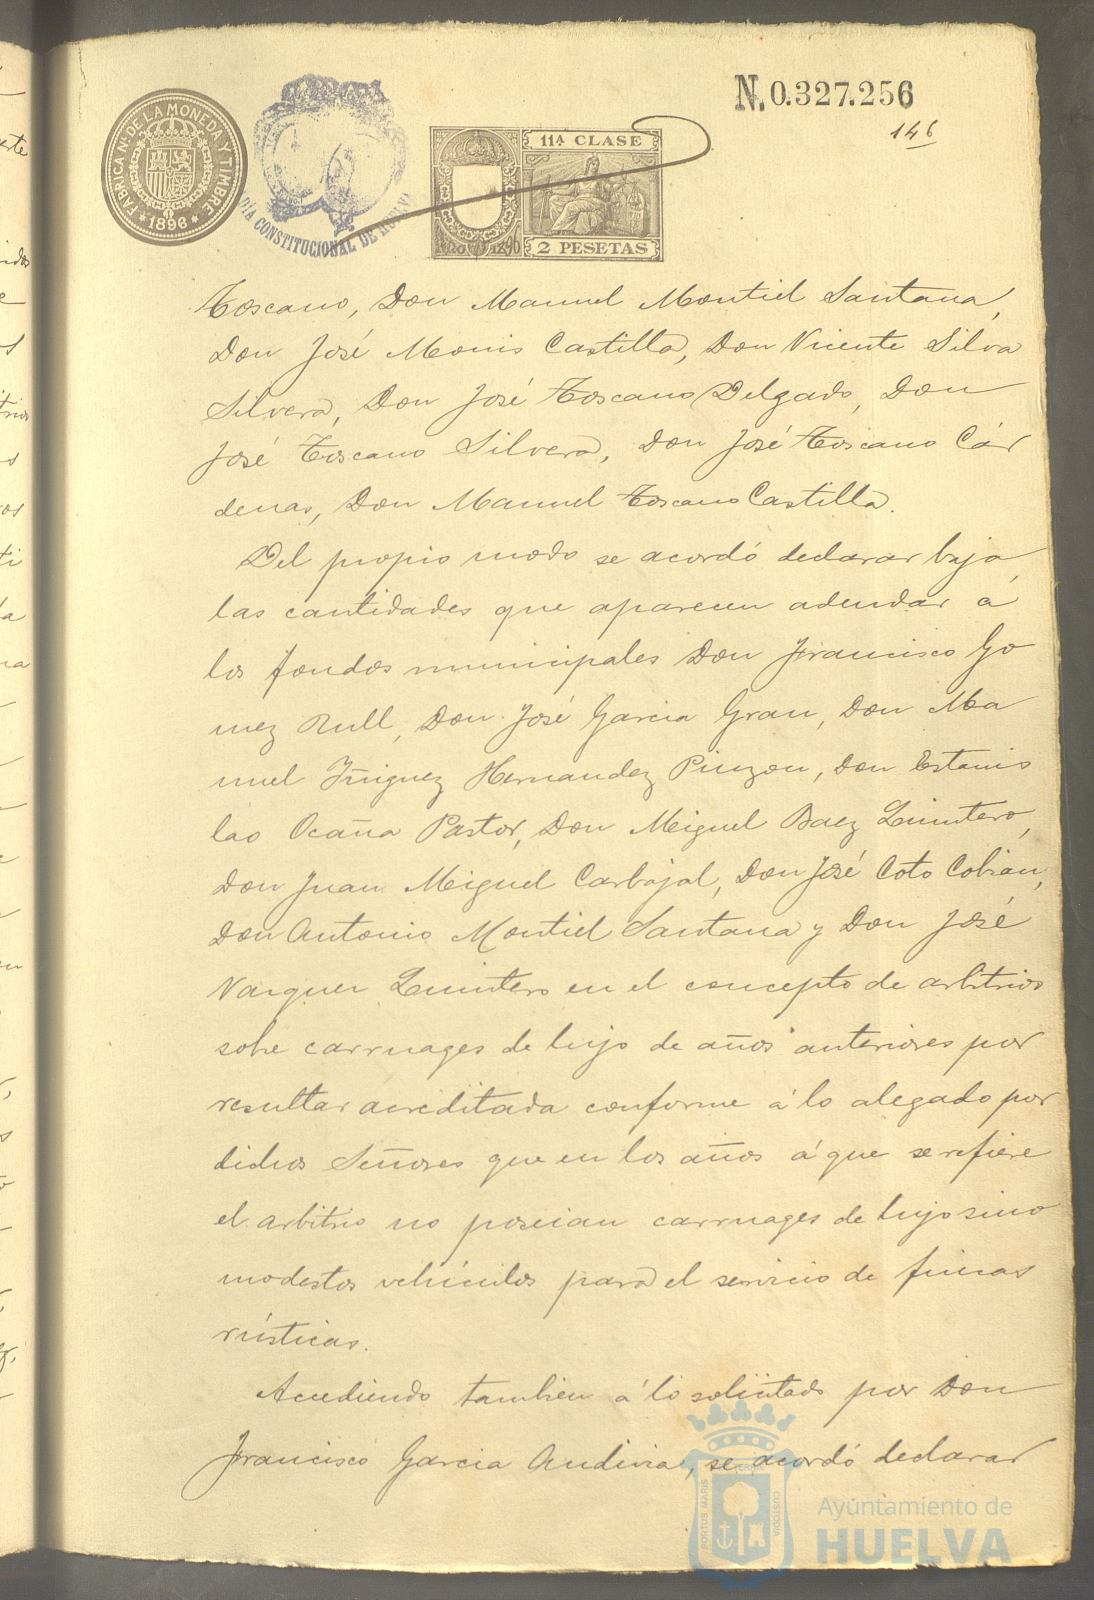 N. 0.327.256
146
FÁBRICA NAL. DE LA MONEDA Y TIMBRE
1896
DÍA CONSTITUCIONAL DE HUELVA
11ª CLASE
2 PESETAS
Toscano, Don Manuel Montiel Santana,
Don José Monis Castilla, Don Vicente Silva
Silvera, Don José Toscano Delgado, Don
José Toscano Silvera, Don José Toscano Cár
denas, Don Manuel Toscano Castilla.
Del propio modo se acordó declarar baja
las cantidades que aparecen adeudar á
los fondos municipales Don Francisco Go
mez Rull, Don José Garcia Grau, Don Ma
nuel Iñiguez Hernandez Pinzon, Don Estanis
lao Ocaña Pastor, Don Miguel Baez Quintero,
Don Juan Miguel Carbajal, Don José Coto Cobián,
Don Antonio Montiel Santana y Don José
Vazquez Quintero en el concepto de arbitrios
sobre carruages de lujo de años anteriores por
resultar acreditada conforme á lo alegado por
dichos Señores que en los años á que se refiere
el arbitrio no poseian carruages de lujo sino
modestos vehículos para el servicio de fincas
rústicas.
Accediendo tambien á lo solicitado por Don
Francisco Garcia Andivia, se acordó declarar
PORTUS MARIS
CUSTODIA
Ayuntamiento de
HUELVA